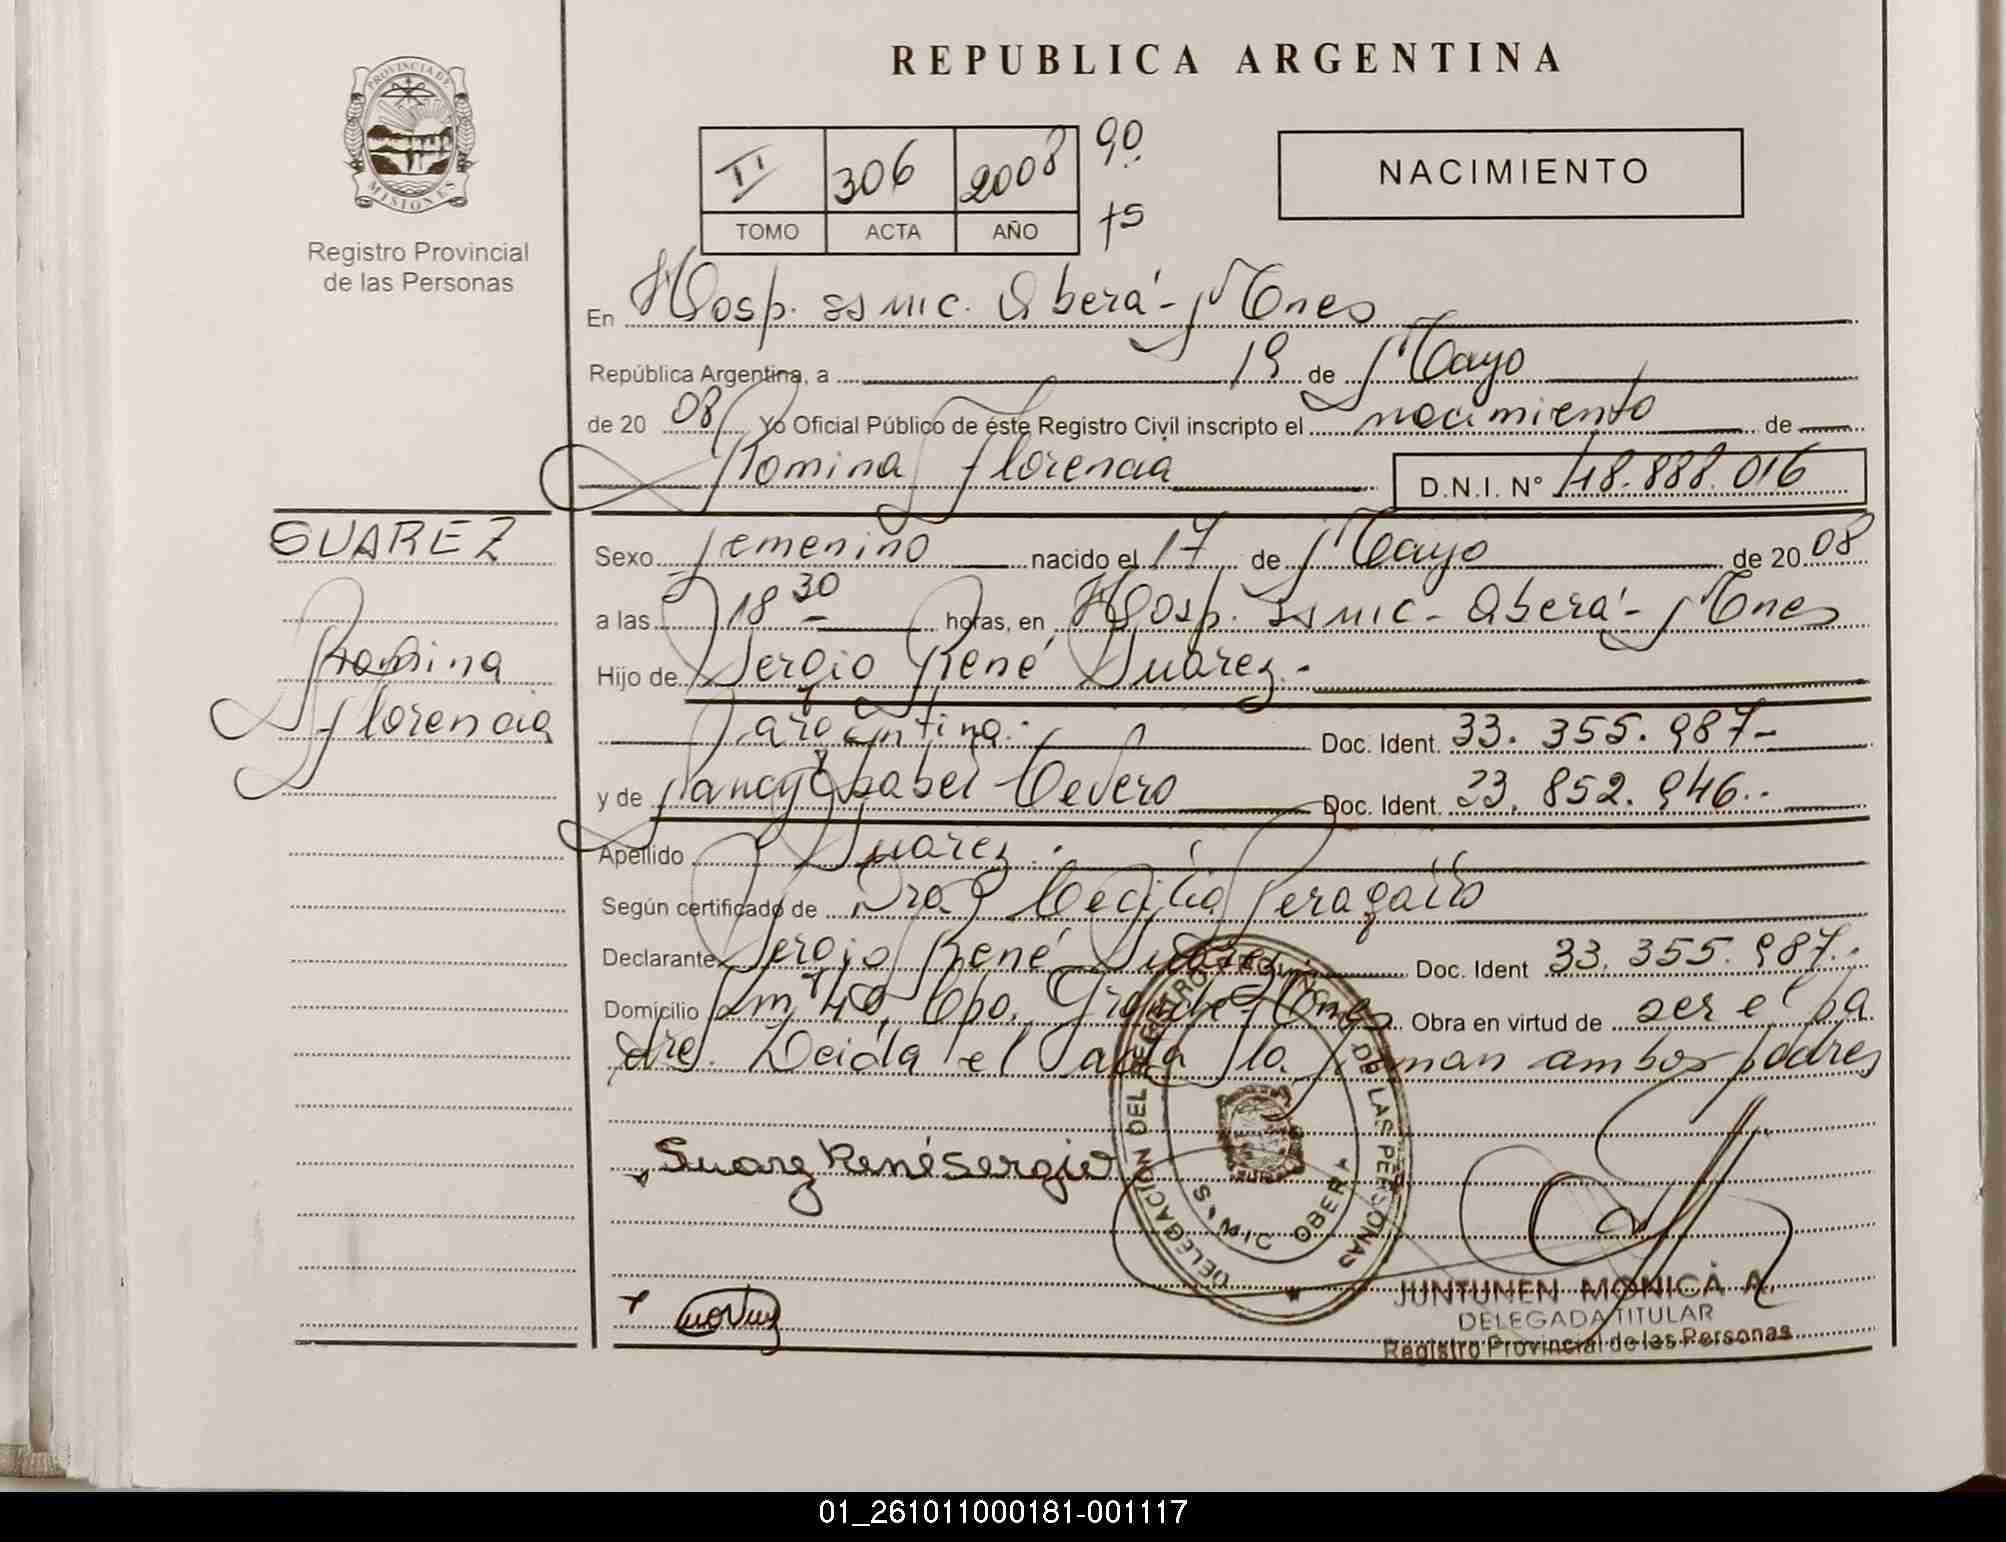 REPUBLICA ARGENTINA
PROVINCIA DE MISIONES
Registro Provincial
de las Personas
II 306 2008 90
TOMO ACTA AÑO 75
NACIMIENTO
En Hosp. SSMIC. Oberá - Mnes
República Argentina, a 19 de Mayo
de 20 08 Yo Oficial Público de éste Registro Civil inscripto el nacimiento de
Romina Florencia D.N.I. N° 48.888.016
SUAREZ
Romina
Florencia
Sexo femenino nacido el 17 de Mayo de 20 08
a las 18 30 horas, en Hosp. SSMIC - Oberá - Mnes
Hijo de Sergio René Suarez.-
argentina. Doc. Ident. 33.355.987-
y de Nancy Isabel Doc. Ident. 33.852.946.-
Apellido Suarez.
Según certificado de Dra. Cecilia
Declarante Sergio René Suarez Doc. Ident 33.355.987.-
Domicilio Km 40, Cpo. Grande - Mnes Obra en virtud de ser el pa
dre. Leida el acta la firman ambos padres
Suarez René Sergio
DELEGACION DEL REGISTRO PROVINCIAL DE LAS PERSONAS
S.S.M.I.C OBERA
JUNTUNEN MONICA A.
DELEGADA TITULAR
Registro Provincial de las Personas
01_261011000181-001117